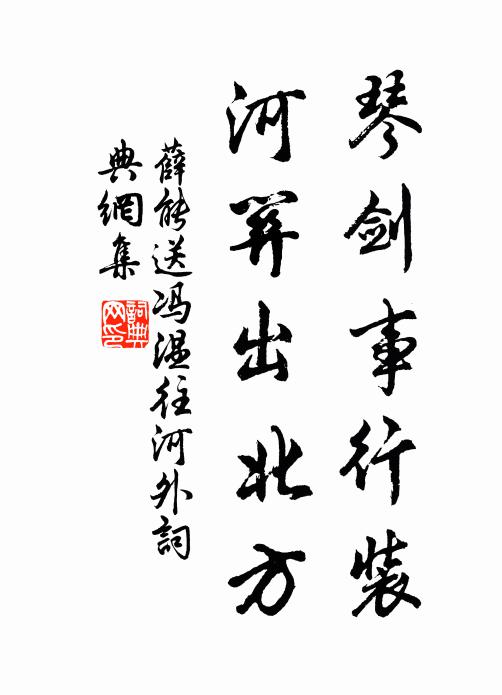 琴剑事行装
河关出北方
薛能送冯温往河外词
典網集
詞典网印